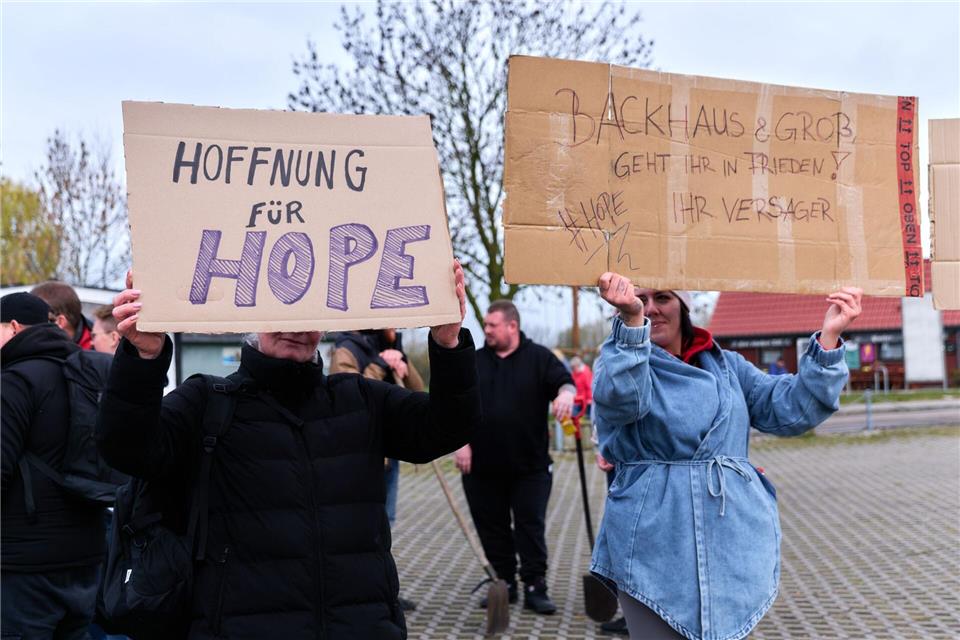 HOFFNUNG
FÜR
HOPE
BACKHAUS & GROß,
GEHT IHR IN FRIEDEN!
#HOPE
IHR VERSAGER
TOP OBEN